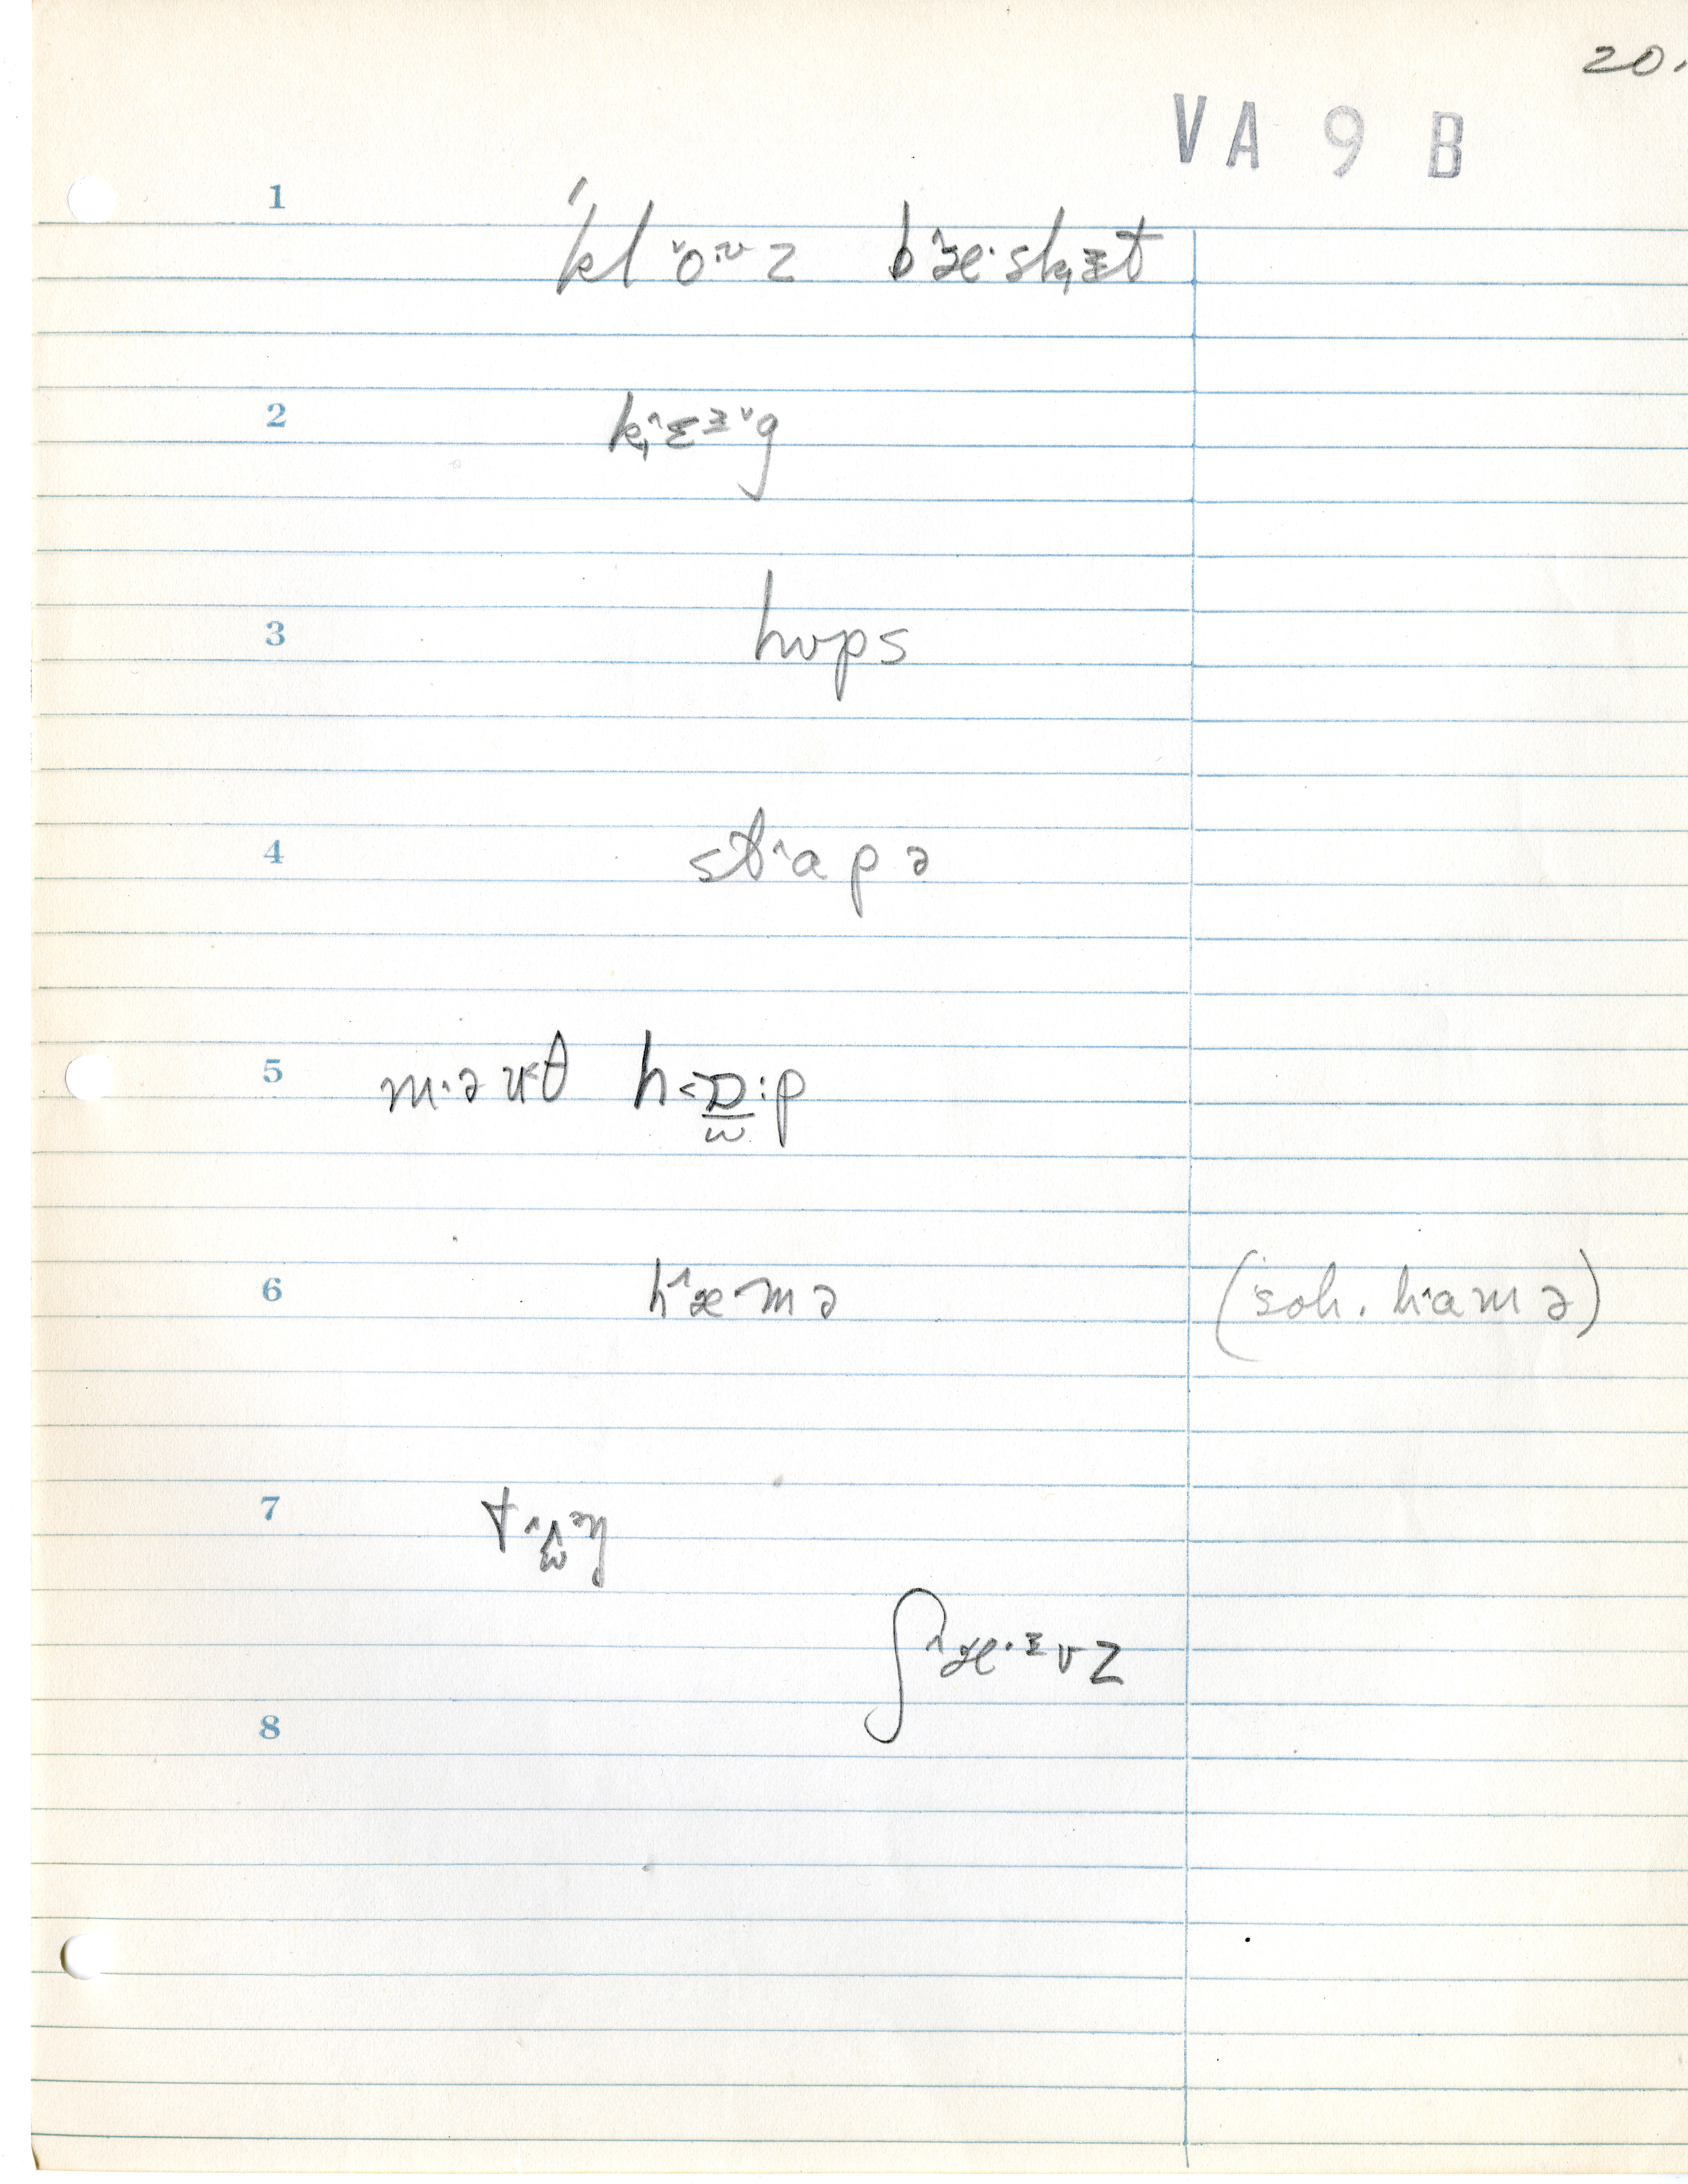 20.
VA 9 B
1 ˈkl˅o·ᶷz b˄æ·sk̟ɪt
2 k̟˄ɛɪ˅g
3 hʊps
4 st˄apə
5 m·əʊθ h˂ɒ:p
6 h˄æmə (soh. h˄amə)
7
ʃ˄æ·ɪvz
8